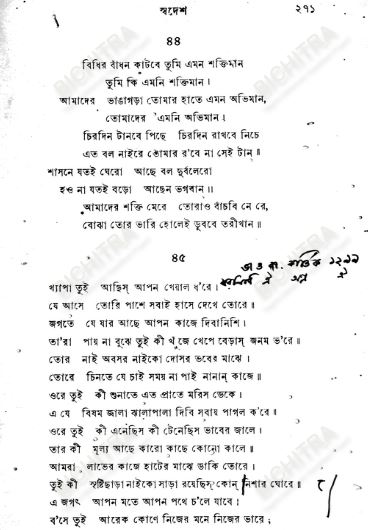 স্বদেশ ২৭১
৪৪
বিধির বাঁধন কাটবে তুমি এমন শক্তিমান
তুমি কি এমনি শক্তিমান।
আমাদের ভাঙাগড়া তোমার হাতে এমন অভিমান,
তোমাদের এমনি অভিমান।
চিরদিন টানবে পিছে চিরদিন রাখবে নিচে
এত বল নাইরে তোমার র'বে না সেই টান॥
শাসনে যতই ঘেরো আছে বল দুর্বলেরো
হও না যতই বড়ো আছেন ভগবান॥
আমাদের শক্তি মেরে তোরাও বাঁচবি নে রে,
বোঝা তোর ভারি হোলেই ডুববে তরীখান॥
৪৫
খ্যাপা তুই আছিস্ আপন খেয়াল ধ'রে।
যে আসে তোরি পাশে সবাই হাসে দেখে তোরে॥
জগতে যে যার আছে আপন কাজে দিবানিশি।
তা'রা পায় না বুঝে তুই কী খুঁজে খেপে বেড়াস্ জনম ভ'রে॥
তোর নাই অবসর নাইকো দোসর ভবের মাঝে।
তোরে চিনতে যে চাই সময় না পাই নানান্ কাজে॥
ওরে তুই কী শুনাতে এত প্রাতে মরিস ডেকে।
এ যে বিষম জালা ঝালাপালা দিবি সবায় পাগল ক'রে॥
ওরে তুই কী এনেছিস কী টেনেছিস ভাবের জালে।
তার কী মূল্য আছে কারো কাছে কোনো কালে॥
আমরা লাভের কাজে হাটের মাঝে ডাকি তোরে।
তুই কী সৃষ্টিছাড়া নাইকো সাড়া রয়েছিস্ কোন্ নিশার ঘোরে॥
এ জগৎ আপন মতে আপন পথে চ'লে যাবে।
ব'সে তুই আরেক কোণে নিজের মনে নিজের ভাবে;
BICHITRA